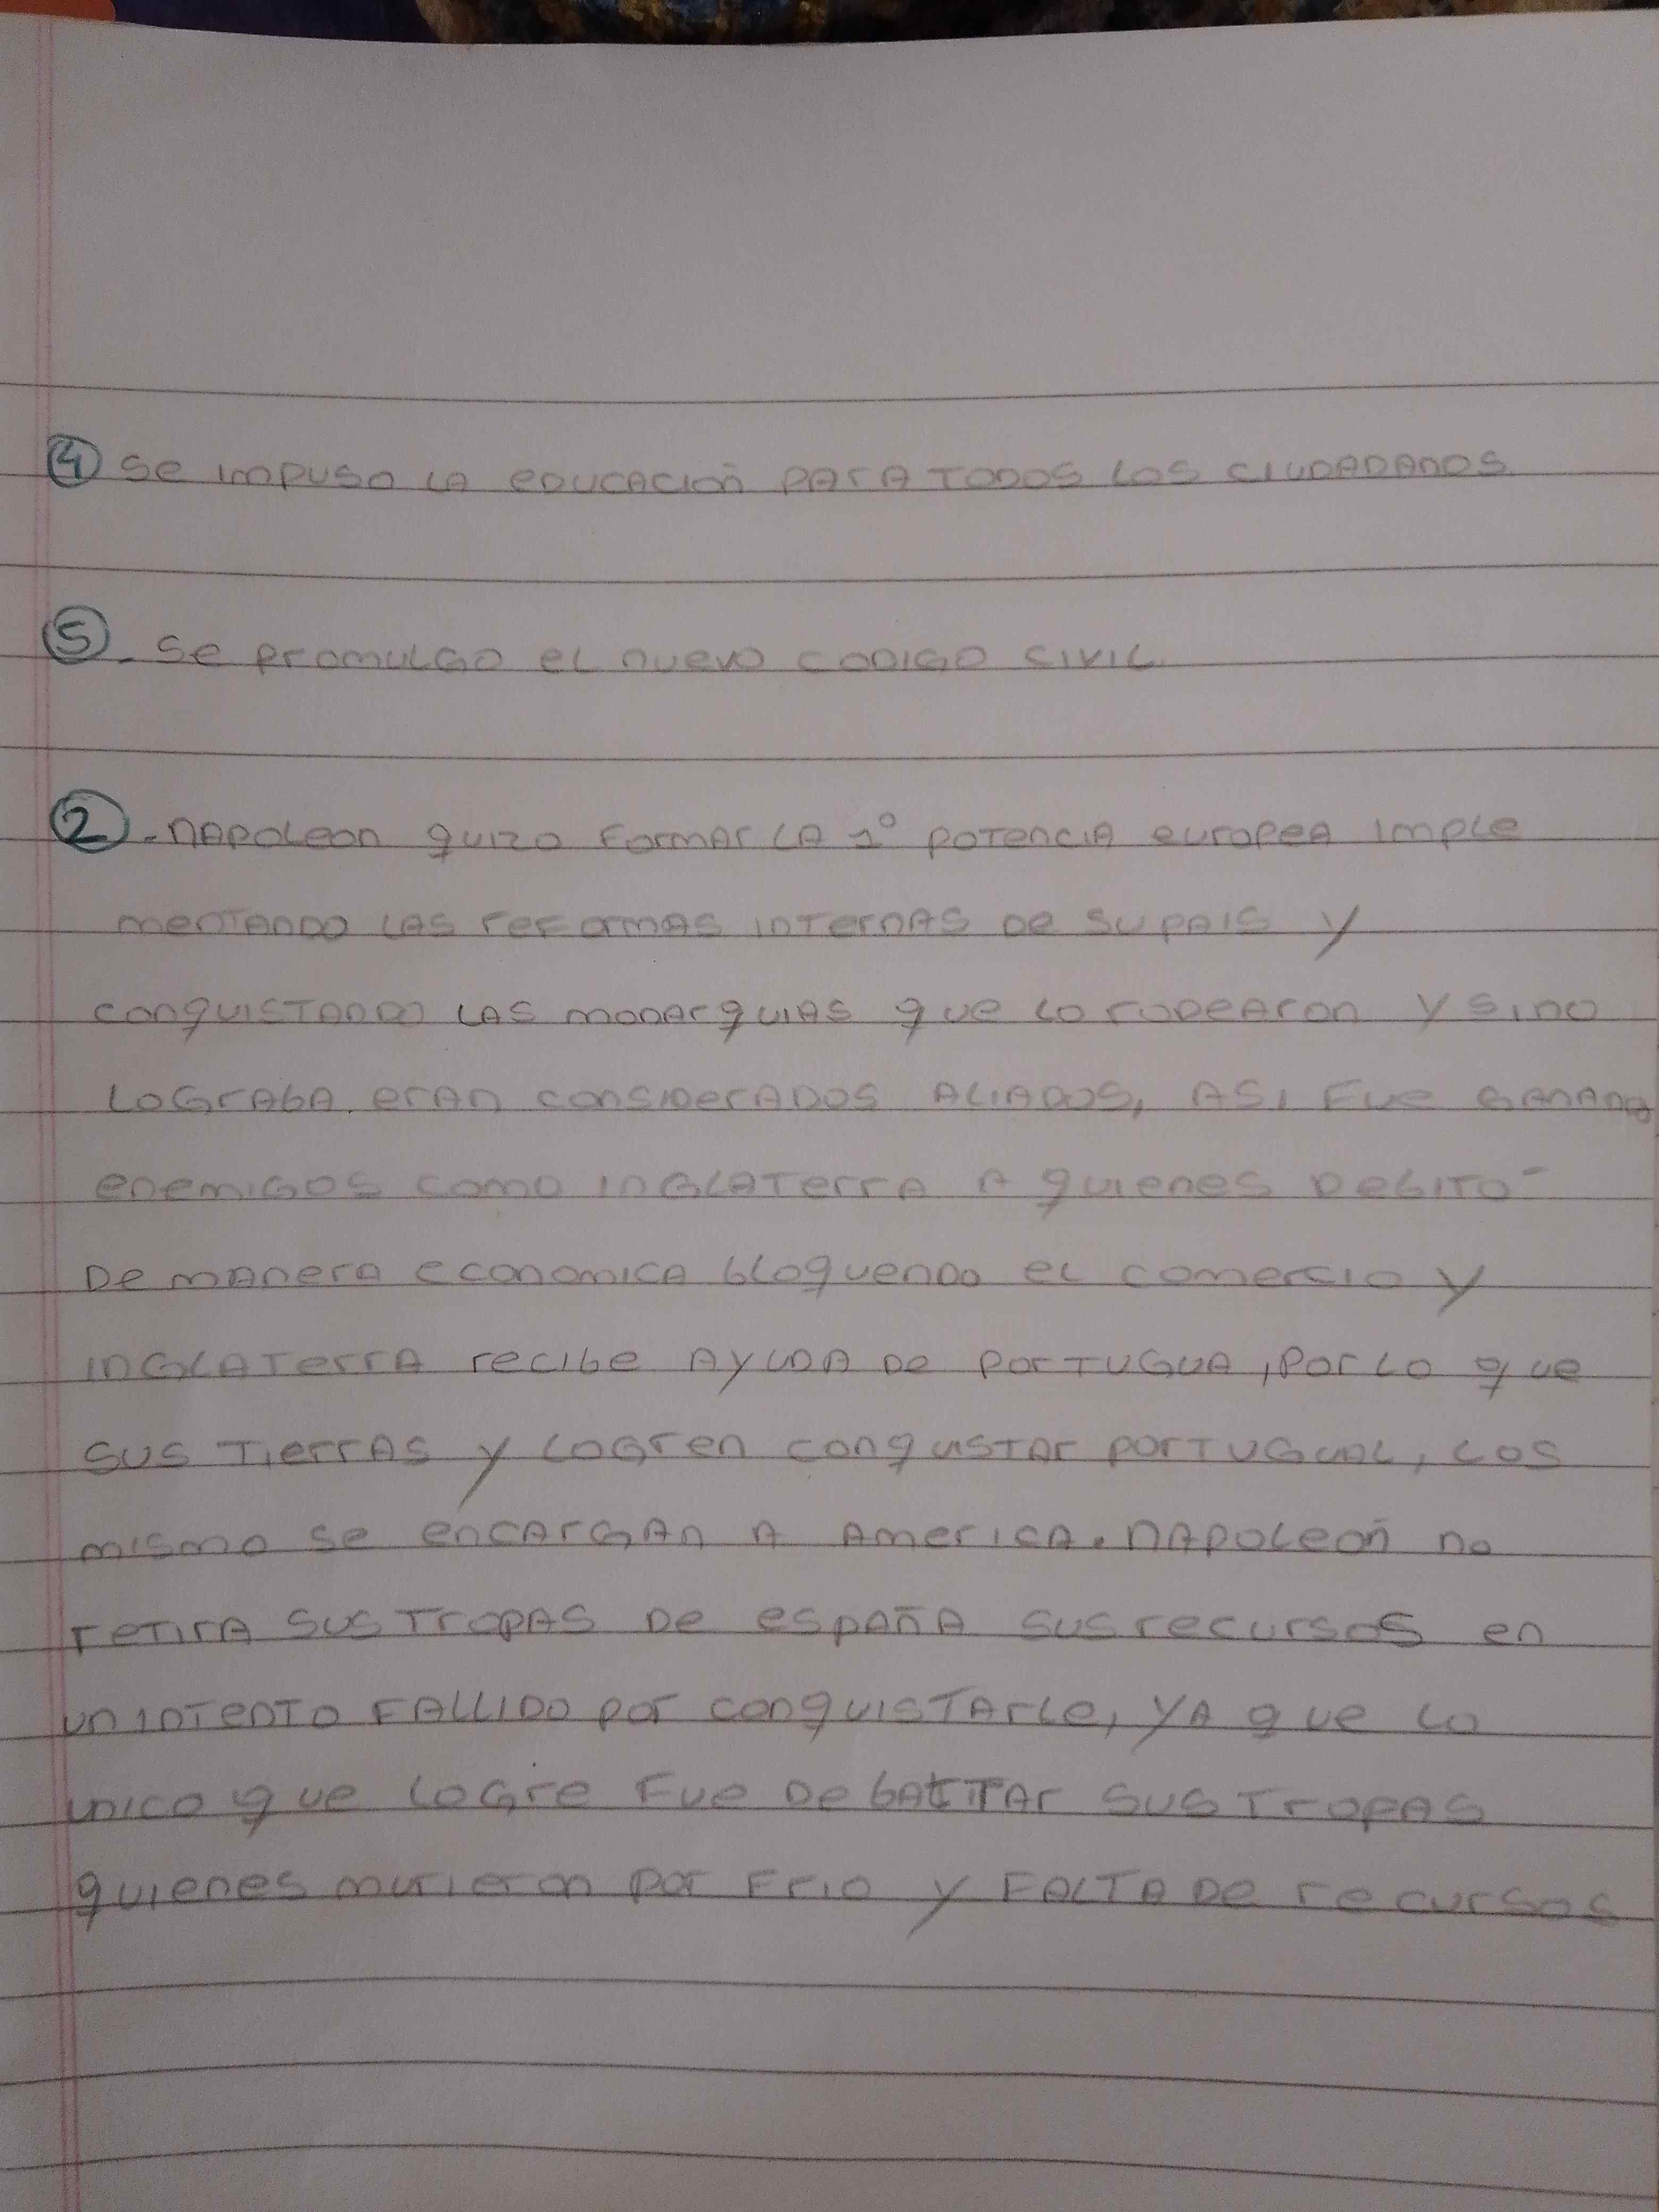 ④ Se impuso la educación para todos los ciudadanos
⑤. Se promulgo el nuevo codigo civil.
②.-Napoleon quizo formar la 1° potencia europea imple
mentando las reformas internas de su pais y
conquistando las monarquias que lo rodearon y sino
lograba eran considerados aliados, asi fue ganando
enemigos como inglaterra a quienes debito
de manera economica bloquendo el comercio y
inglaterra recibe ayuda de Portugua, por lo que
sus tierras y logren conquistar portugual, los
mismo se encargan a America. Napoleoñ no
retira sus tropas de españa sus recursos en
un intento fallido por conquistarle, ya que lo
unico que logre fue debatitar sus tropas
quienes murieron por frio y falta de recursos